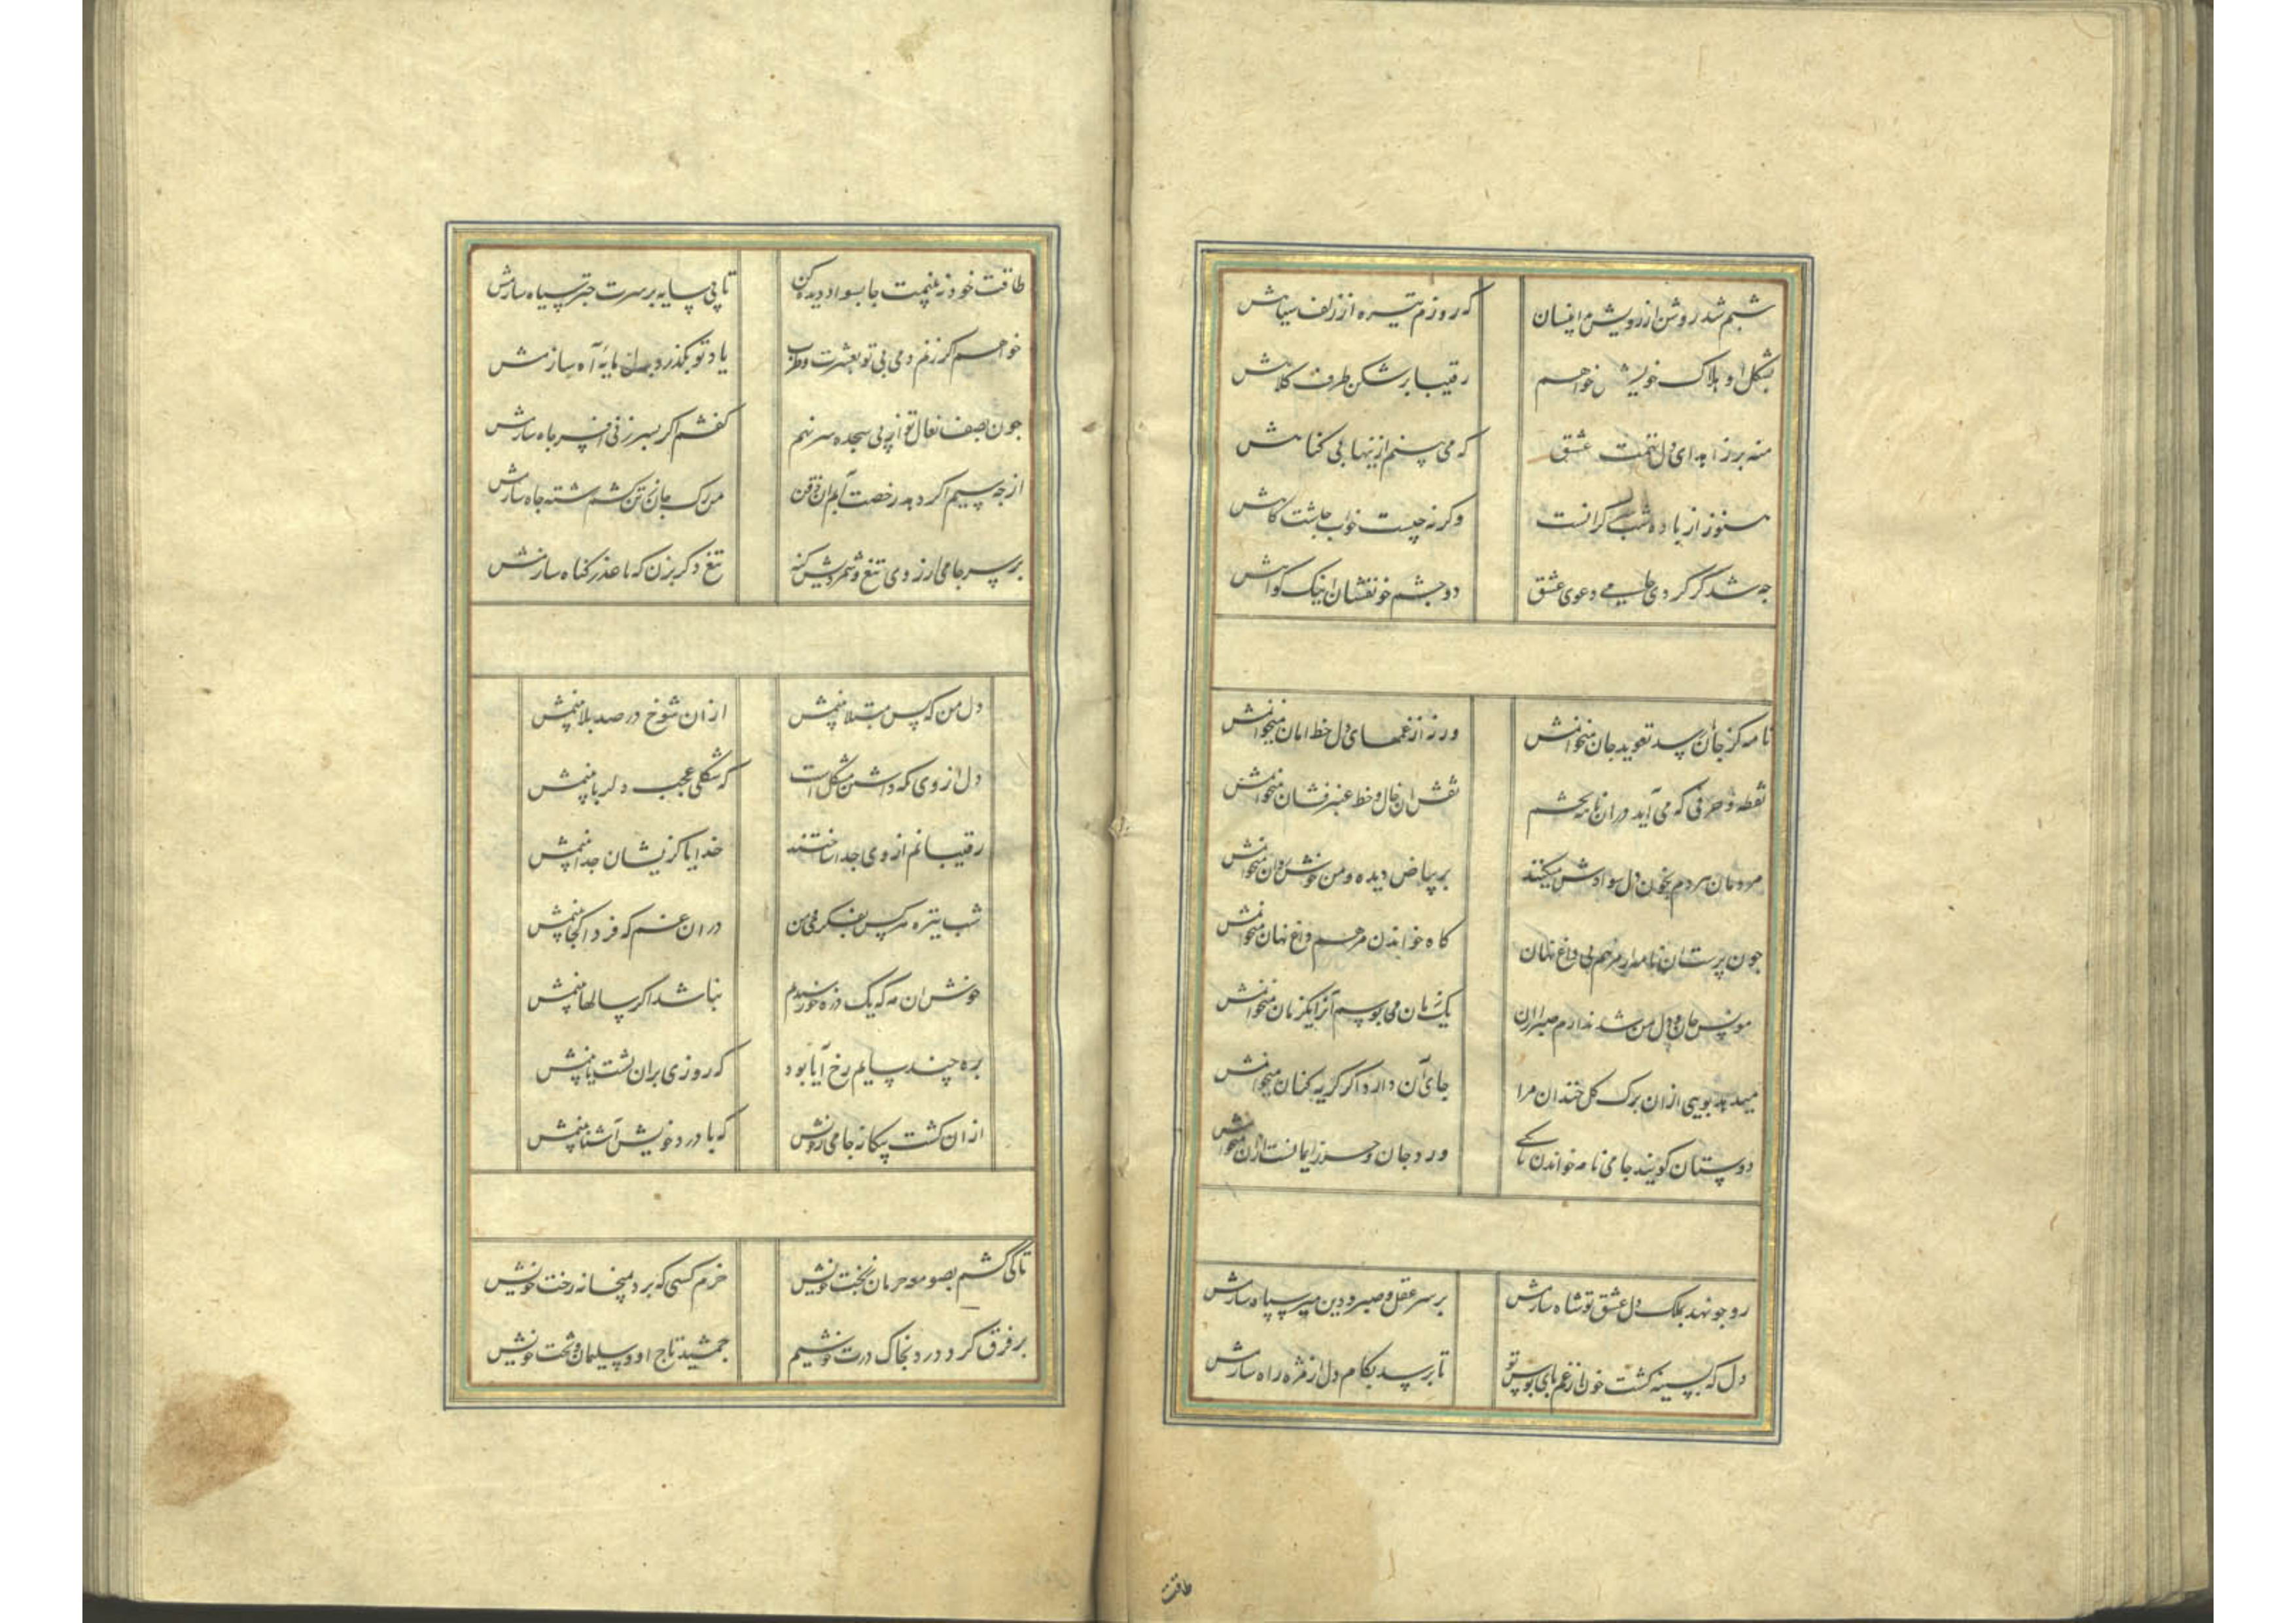 شبم شد روشن از رویش اینسان
که روزم تیره از زلف سیاهش
بشکل او هلاک خویش خواهم
رقیبا بر شکن طرف کلاهش
منه بر زاهد ای دل تهمت عشق
که می بینم ازینها بی کناهش
هنوز از باده شب سر کرانست
وکرنه چیست خواب چاشت کاهش
جه شد کر کرد جامی دعوی عشق
دو جشم خونفشان اینک کواهش
نامه کز جانان رسد تعوید جان میخوانمش
ور ز از غمهای دل خط امان میخوانمش
نقطه و حرفی که می آید در ان نامه بجشم
نقش ان خال و خط عنبرفشان میخوانمش
مردمان مردم بخون دل سوادش میکنند
بر بیاض دیده و من خوش روان میخوانمش
جون پرستان نامه را مرهم بی داغ نهان
کاه خواندن مرهم داغ نهان میخوانمش
مونس جان و دل من شد ندارم صبر ازان
یک زمان می بوسم آنرا یکزمان میخوانمش
میدهد بویی ازان برک کل خندان مرا
جای آن دارد اکر کریه کنان میخوانمش
دوستان کویند جامی نامه خواندن تا بکی
ورد جان و حرز ایمانست ازان میخوانمش
رو جو نهد بملک دل عشق تو شاه سازمش
بر سر عقل و صبر و دین میر سپاه سازمش
دل که بسینه کشت خون از غم پای بوس تو
تا برسد بکام دل از مژه راه سازمش
طاقت
طاقت خود نه غنیمت جا بسواد دیده کن
تا پی سایه بر سرت جتر سیاه سازمش
خواهم اکر زنم دمی بی تو بعشرت و طرب
یاد تو بکذرد بدل مایه آه سازمش
جون بصف نعال تو از پی سجده سر نهم
کفشم اکر بسر زنی افسر جاه سازمش
از جه سیم اکر دهد رخصت آبم ان ذقن
من رک جان ز تن کشم رشته جاه سازمش
بر سر جامی ار زدی تیغ و شمردیش کنه
تیغ دکر بزن که تا عذر کناه سازمش
دل من که بس مبتلا بینمش
ازان شوخ در صد بلا بینمش
دل از وی نکه داشتن مشکل است
که شکلی عجب دلربا بینمش
رقیبانم از وی جدا ساختند
خدایا کزیشان جدا بینمش
شب تیره هرکس بفکری و من
دران غم که فردا کجا بینمش
خوش ان مه که یک ذره خورسندم
نباشد اکر سالها بینمش
بره چند سایم رخ آیا بود
که روزی بران پشت پا بینمش
ازان کشت بیکانه جامی ز خویش
که با درد خویش آشنا بینمش
تا کی کشم بصومعه حرمان ز بخت خویش
خرم کسی که برد بمیخانه رخت خویش
بر فرق کرد درد بخاک درت خوشیم
جمشید و تاج او و سلیمان و تخت خویش